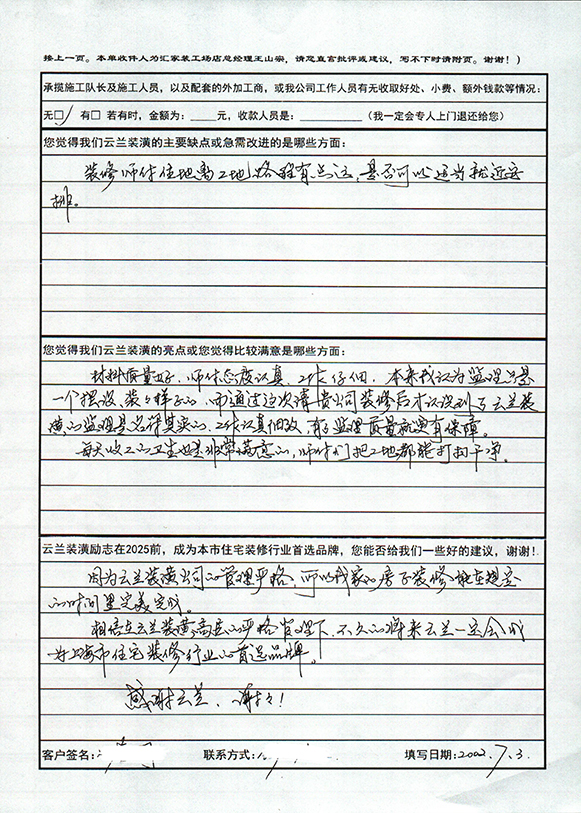 接上一页。本单收件人为汇家装工场店总经理王山崇，请您直言批评或建议，写不下时请附页。谢谢！)
承揽施工队长及施工人员，以及配套的外加工商，或我公司工作人员有无收取好处、小费、额外钱款等情况：
无□/ 有□ 若有时，金额为：____元，收款人员是：________（我一定会专人上门退还给您）
您觉得我们云兰装潢的主要缺点或急需改进的是哪些方面：
装修师付住地离工地路程有点远，是否可以适当就近安
排。
您觉得我们云兰装潢的亮点或您觉得比较满意是哪些方面：
材料质量好，师付态度认真，工作仔细，本来我认为监理只是
一个摆设，装装样子的，而通过这次请贵公司装修后才认识到了云兰装
潢的监理是名符其实的，工作认真细致，有了监理质量就更有保障。
每天收工的卫生也是非常满意的，师付们把工地都能打扫干净。
云兰装潢励志在2025前，成为本市住宅装修行业首选品牌，您能否给我们一些好的建议，谢谢！
因为云兰装潢公司的管理严格，所以我家的房子装修能在规定
的时间里完美完成。
相信在云兰装潢高层的严格管理下，不久的将来云兰一定会成
为上海市住宅装修行业的首选品牌。
感谢云兰，谢谢！
客户签名： 联系方式： 填写日期：2002.7.3.